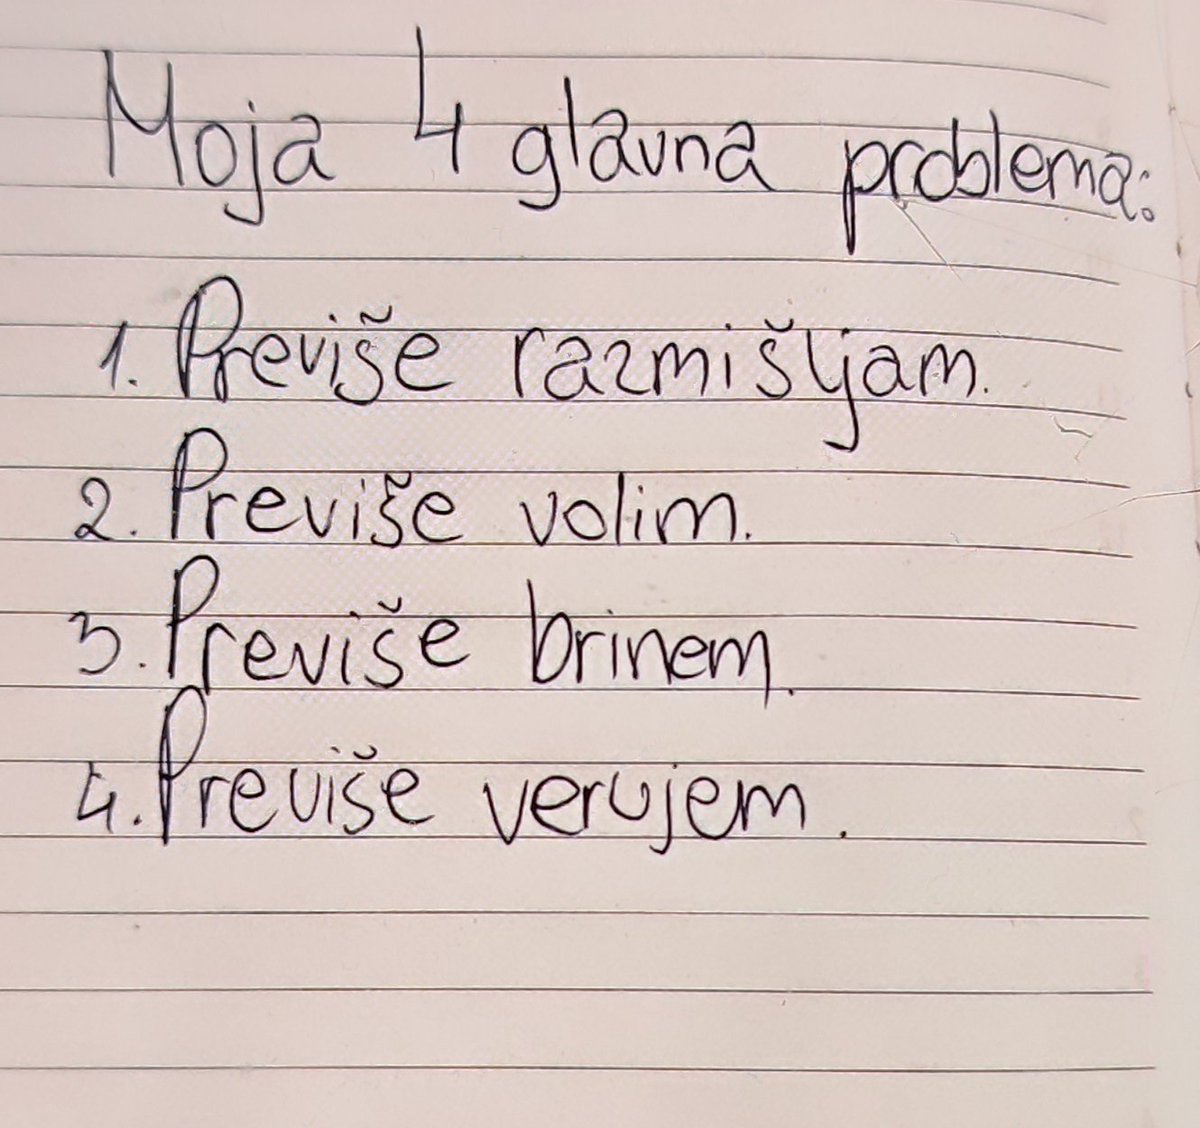 Moja 4 glavna problema:
1. Previše razmišljam.
2. Previše volim.
3. Previše brinem.
4. Previše verujem.